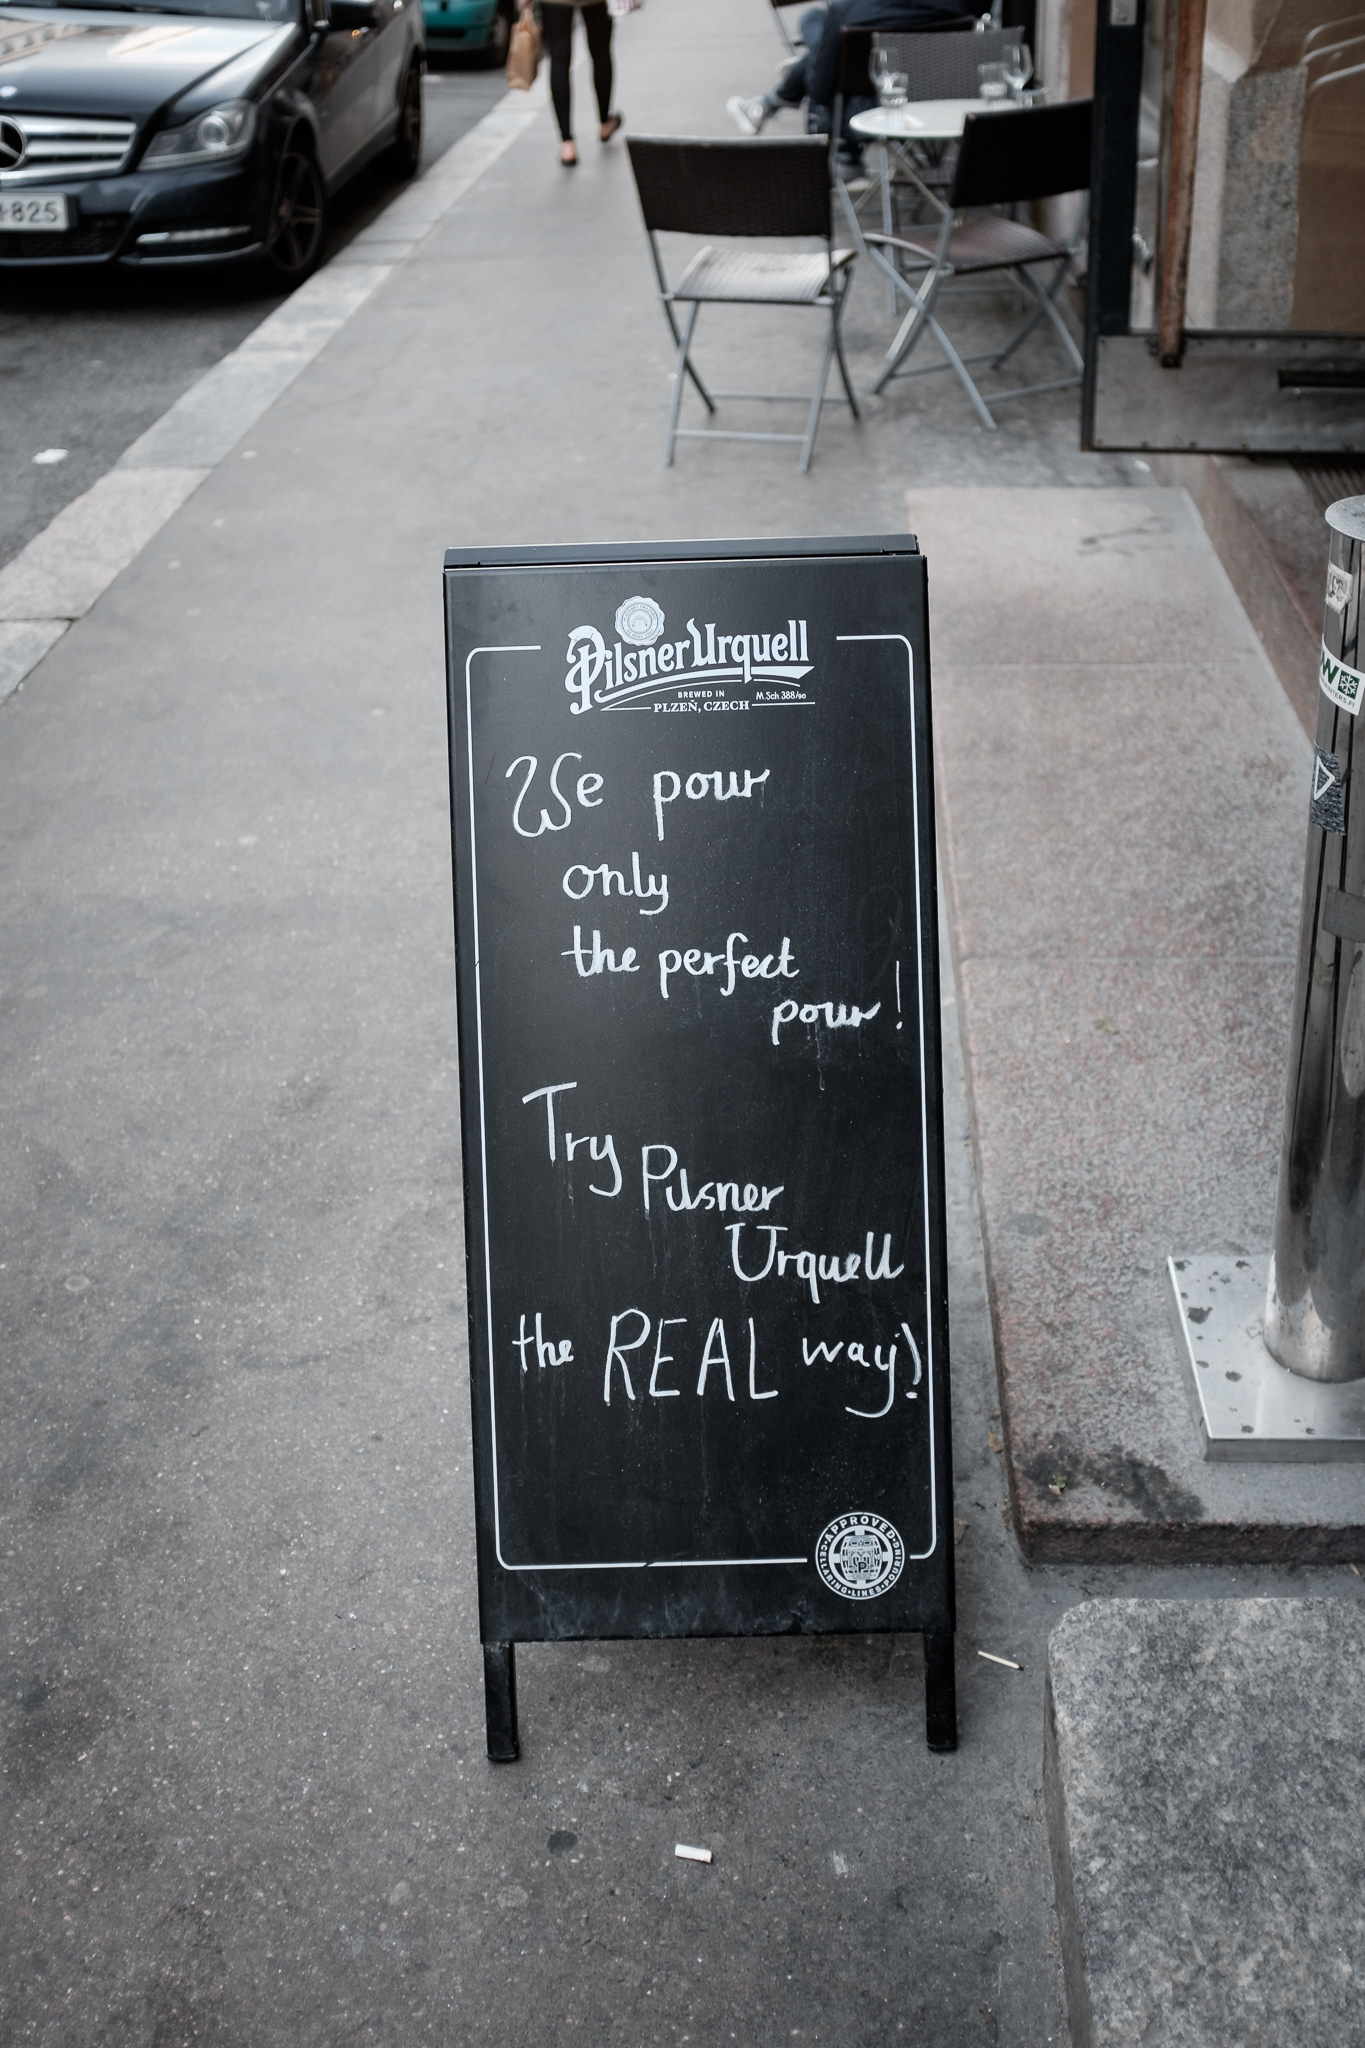 +825
Pilsner Urquell
BREWED IN
PLZEŇ, CZECH
M.Sch 388/90
We pour
only
the perfect
pour!
Try Pilsner
Urquell
the REAL way!
APPROVED
CELLARING • LINES • POURING